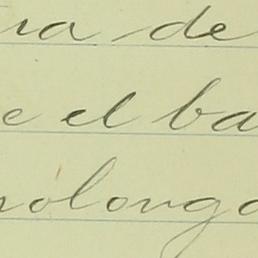 ra de
e el ba
rolonga